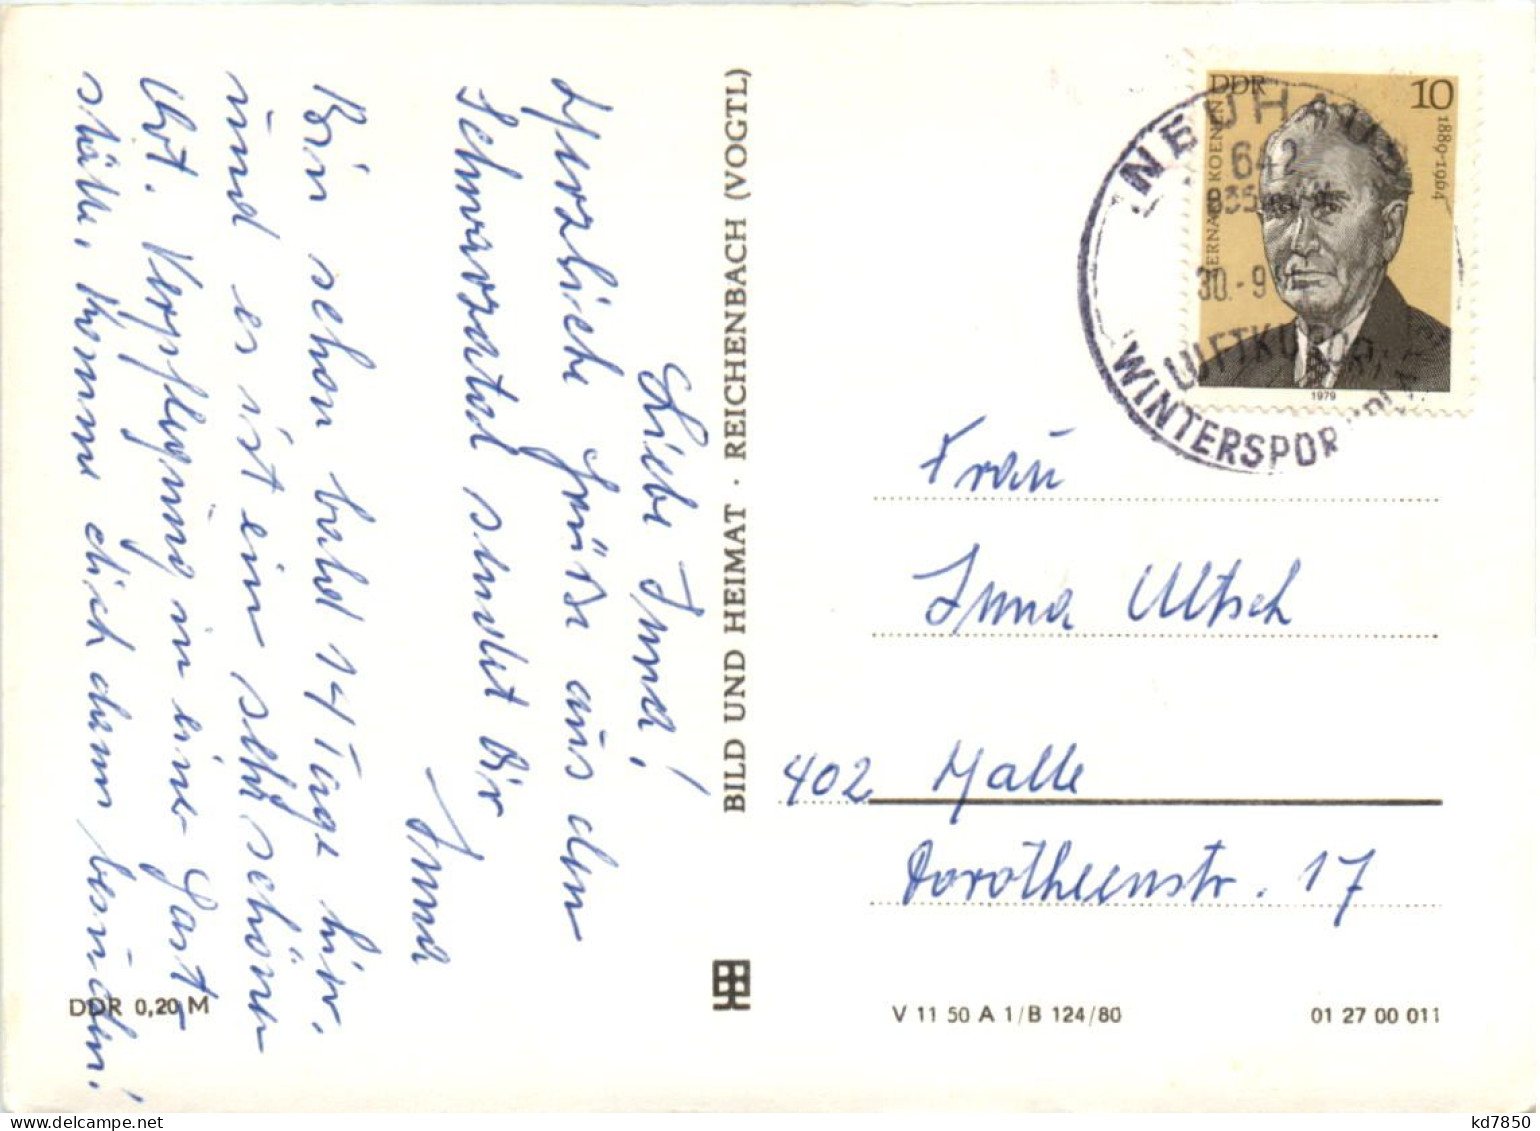 Liebe Irma!
Herzliche Grüße aus dem
Schwarzatal sendet Dir
Irma
Bin schon bald 14 Tage hier,
und es ist ein sehr schöner
Ort. Verpflegung in einer Gast-
stätte. Komme dich dann besuchen!
DDR 0,20 M
BILD UND HEIMAT · REICHENBACH (VOGTL)
V 11 50 A 1/B 124/80
01 27 00 011
DDR
10
BERNARD KOENEN
1889-1964
1979
NEUHAUS
642
30.-9
LUFTKUROR
WINTERSPOR
Frau
Irma Ultsch
402 Halle
Dorotheenstr. 17
kd7850